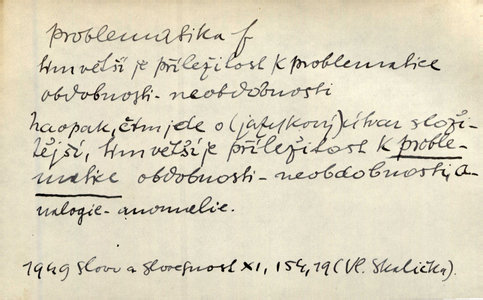 problematika f
tím větší je příležitost k problematice
obdobnosti - neobdobnosti
naopak, čím jde o (jazykový) útvar složi-
tější, tím větší je příležitost k proble-
matice obdobnosti - neobdobnosti, a-
nalogie - anomalie.
1949 Slovo a slovesnost XI, 154, 19 (Vl. Skalička).